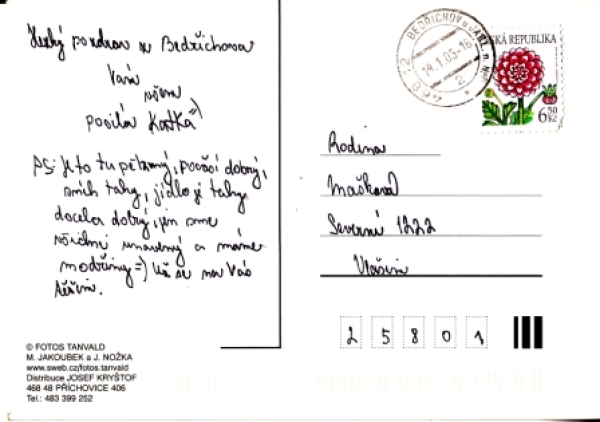 Hezký pozdrav z Bedřichova
Vám
všem
posílá Katka =)
PS: Je to tu pěkný, počasí dobrý,
sníh taky, jídlo je taky
docela dobrý, jen sme
všichni unavený a máme
modřiny =) Už se na Vás
těším.
© FOTOS TANVALD
M. JAKOUBEK a J. NOŽKA
www.sweb.cz/fotos.tanvald
Distribuce JOSEF KRYŠTOF
468 48 PŘÍCHOVICE 406
Tel.: 483 399 252
BEDŘICHOV u JABL. n. Nis.
19.1.05-16
a
468 12
ČESKÁ REPUBLIKA
6,50 Kč
Rodina
Maškova
Severní 1222
Vlašim
2 5 8 0 1